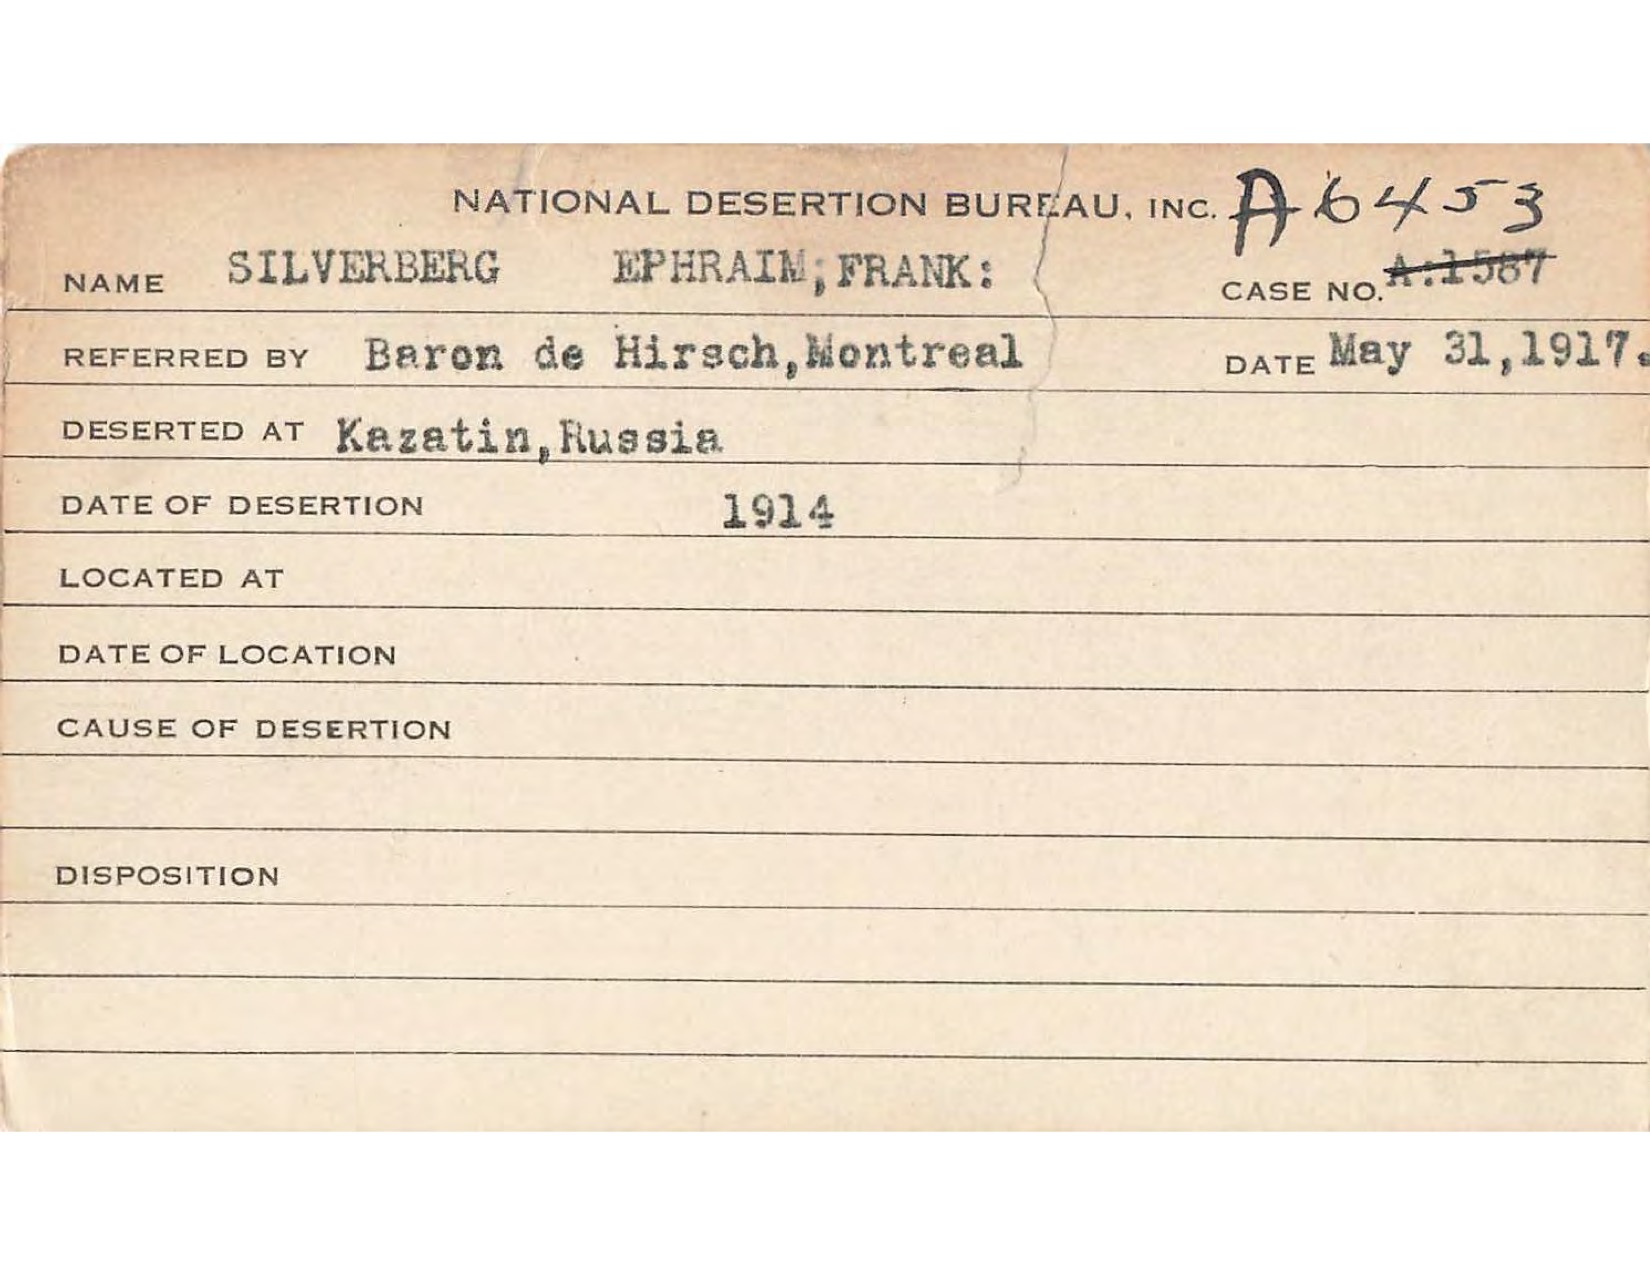 NATIONAL DESERTION BUREAU, INC. A6453
NAME SILVERBERG EPHRAIM;FRANK: CASE NO. A:1587
REFERRED BY Baron de Hirsch,Montreal DATE May 31,1917.
DESERTED AT Kazatin,Russia
DATE OF DESERTION 1914
LOCATED AT
DATE OF LOCATION
CAUSE OF DESERTION
DISPOSITION